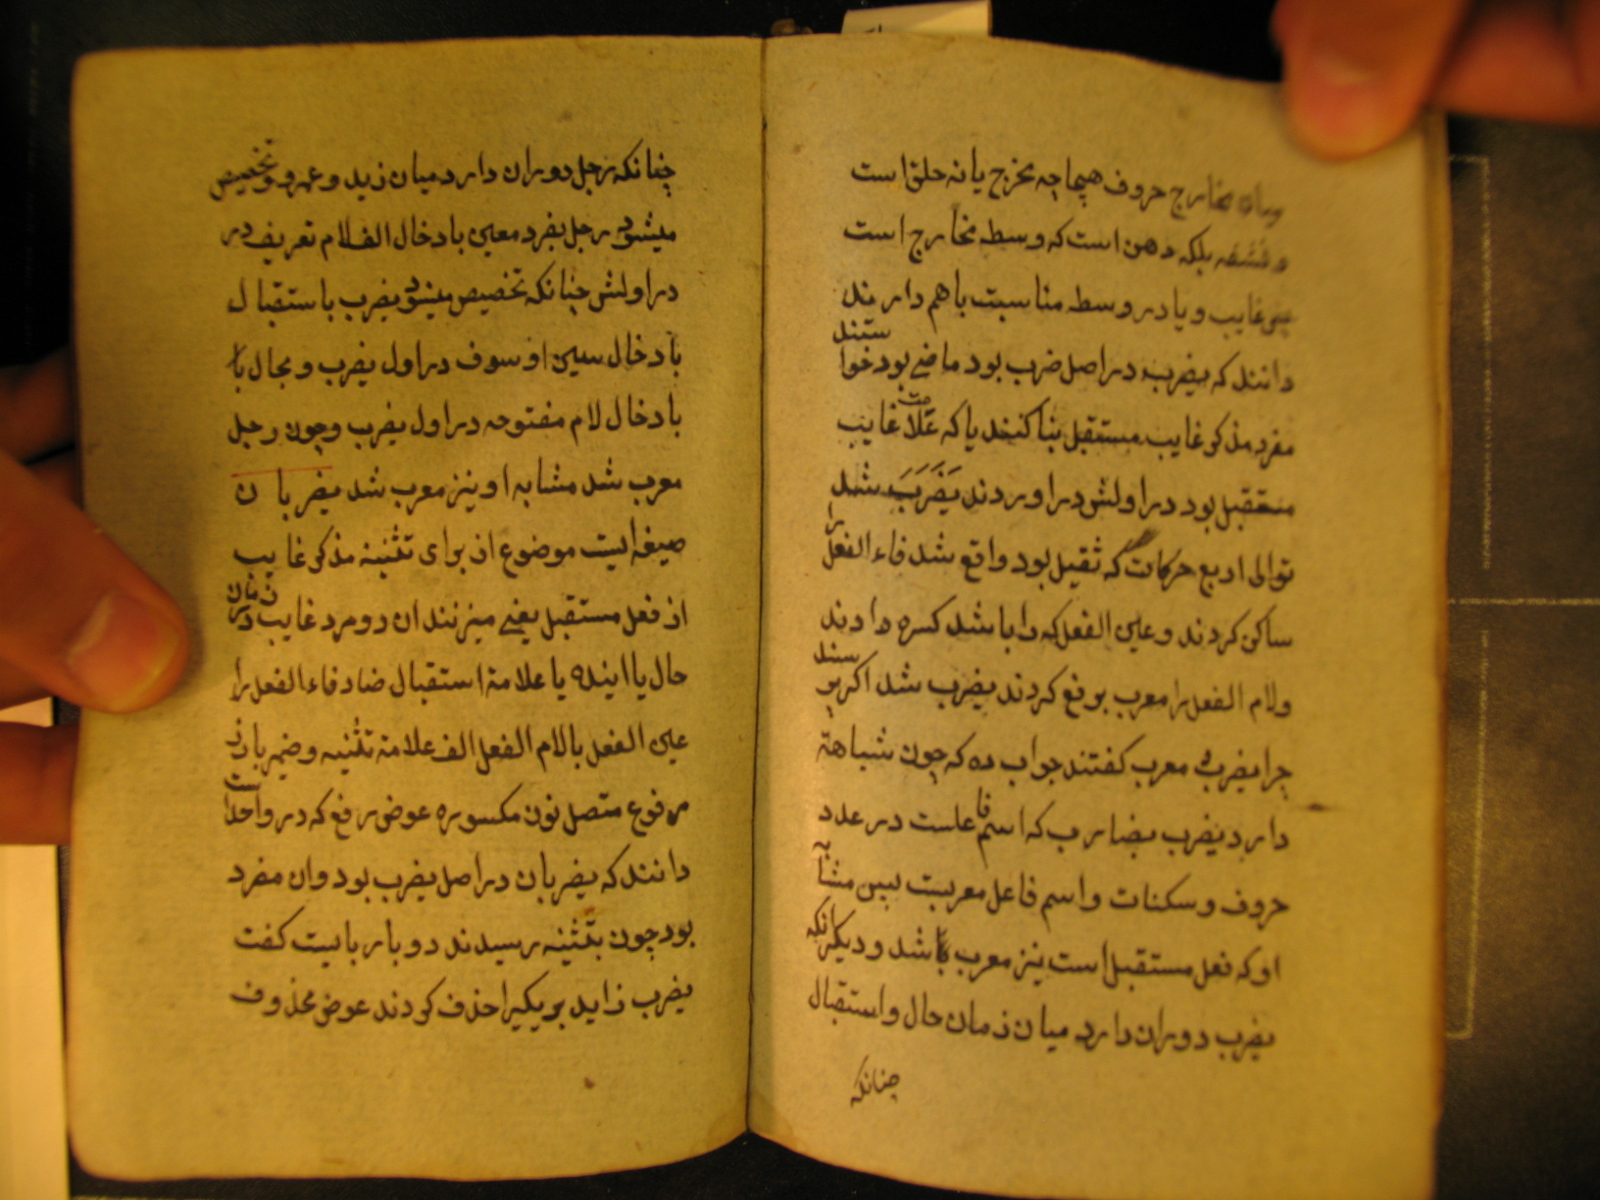 مخارج حروف هیچا چه مخرج یا نه حلق است
بلکه دهن است که وسطه مخارج است
غایب و یا در وسطه مناسبت باهم دارند
دانند که یضرب در اصل ضرب بود ماضی بود خواستند
مفرد مذکر غایب مستقبل بنا کنند یا که علامت غایب
مستقبل بود در اولش در اوردند یَضَرَبَ شد
توالی اربع حرکات که ثقیل بود واقع شد فاء الفعل را
ساکن کردند و عین الفعل که را باشد کسره دادند
ولام الفعل را معرب برفع کردند یضرب شد اکر پرسند
چرا یضرب معرب کفتند جواب ده که چون شباهة
دارد یضرب بضارب که اسم فاعلست در عدد
حروف و سکنات و اسم فاعل معربست پس مشابه
او که فعل مستقبل است نیز معرب باشد و دیکر انکه
یضرب دوران دارد میان زمان حال و استقبال
چنانکه
چنانکه رجل دوران دارد میان زید و عمرو و تخصیص
میشود رجل بفرد معین بادخال الف لام تعریف در
در اولش چنانکه تخصیص میشود یضرب باستقبال
بادخال سین او سوف در اول یضرب و بحال با
بادخال لام مفتوحه در اول یضرب و چون رجل
معرب شد مشابه او نیز معرب شد یضربان
صیغه ایست موضوع از برای تثنیه مذکر غایب
از فعل مستقبل یعنی میزنند ان دو مرد غایب در زمان
حال یا اینده یا علامة استقبال ضاد فاء الفعل را
عین الفعل با لام الفعل الف علامة تثنیه و ضمیر بارز
مرفوع متصل نون مکسوره عوض رفع که در واحد است
دانند که یضربان در اصل یضرب بود وان مفرد
بود چون بتثنیه رسیدند دو بار بایست کفت
یضرب زاید بر یکیرا حذف کردند عوض محذوف